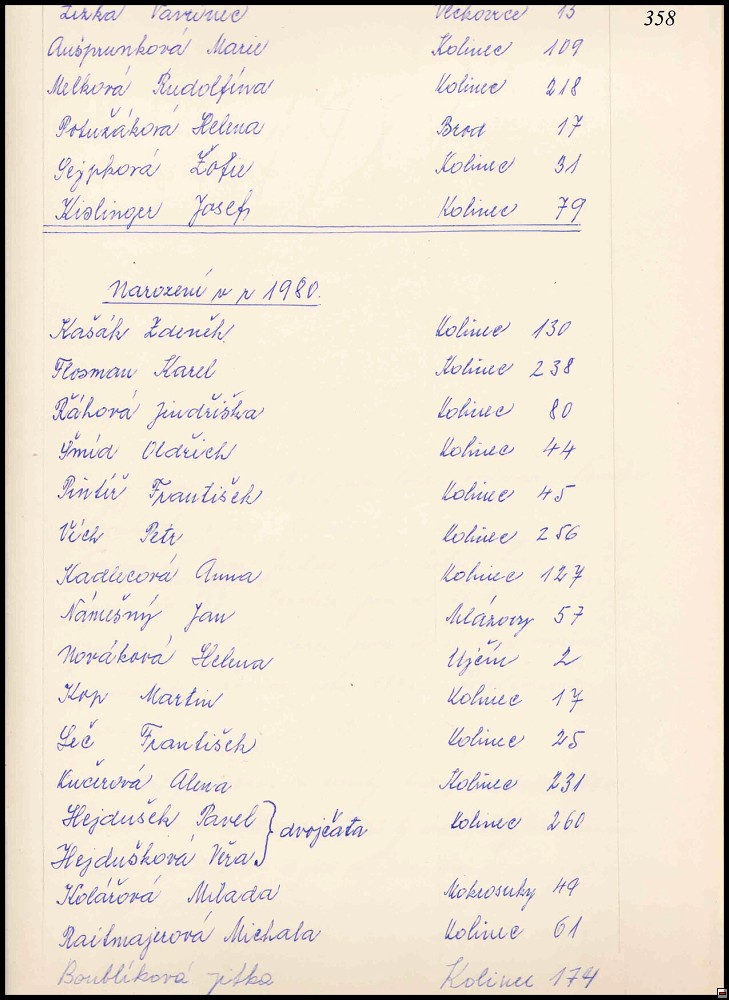 358
Žižka Vavřinec Vlčkovice 13
Aušprunková Marie Kolinec 109
Melková Rudolfína Kolinec 218
Potužáková Helena Brod 17
Sejpková Žofie Kolinec 31
Kislinger Josef Kolinec 79
Narození v r 1980.
Kašák Zdeněk Kolinec 130
Flosman Karel Kolinec 238
Řáhová Jindřiška Kolinec 80
Šmíd Oldřich Kolinec 44
Pintíř František Kolinec 45
Vích Petr Kolinec 256
Kadlecová Anna Kolinec 127
Námešný Jan Mlázovy 57
Nováková Helena Ujčín 2
Kop Martin Kolinec 17
Leč František Kolinec 25
Kučerová Alena Kolinec 231
Hejdušek Pavel } dvojčata Kolinec 260
Hejdušková Věra
Kolářová Milada Mokrosuky 49
Raitmajerová Michala Kolinec 61
Boublíková Jitka Kolinec 174